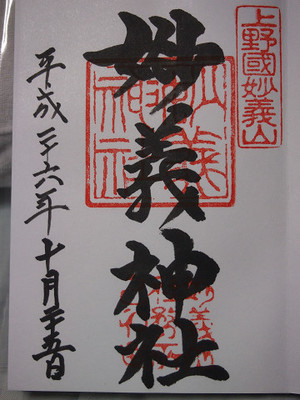 上野國妙義山
妙義神社
平成二十六年十月二十五日